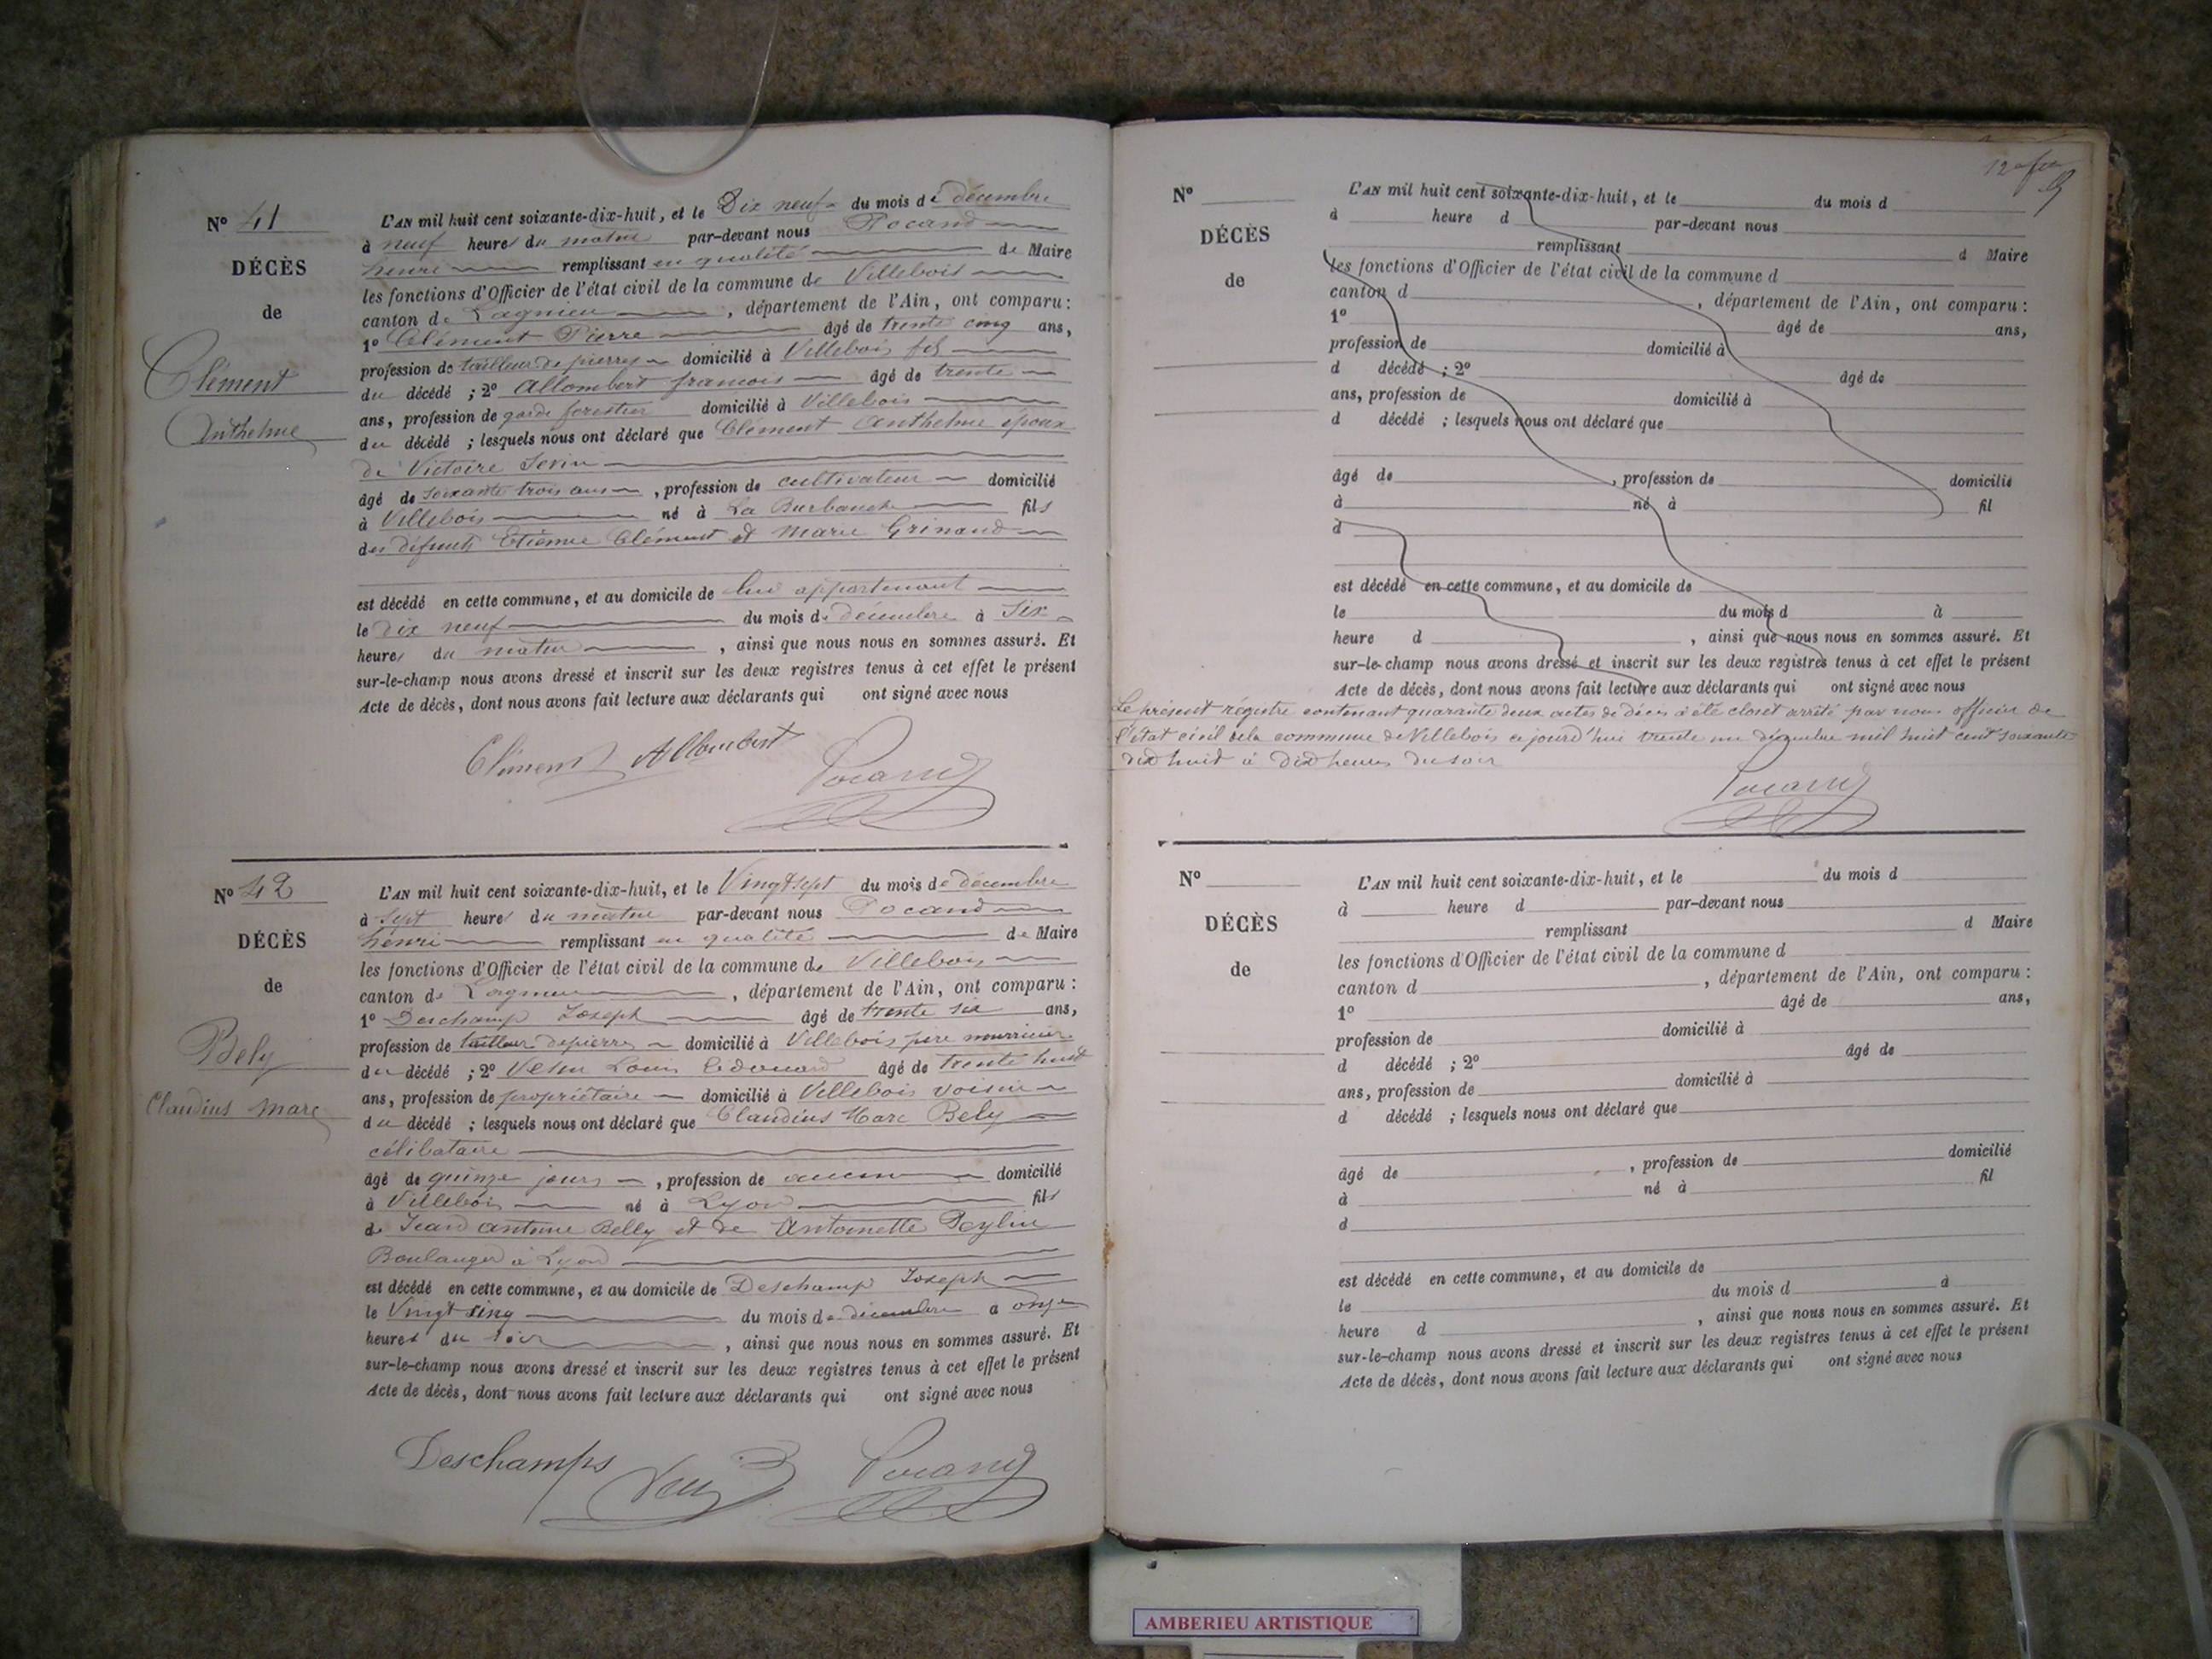 N° 41
DÉCÈS
de
Clément
Anthelme
L'AN mil huit cent soixante-dix-huit, et le Dix neuf du mois de décembre
à neuf heures du matin par-devant nous Pocand
henri remplissant en qualité de Maire
les fonctions d'Officier de l'état civil de la commune de Villebois
canton de Lagnieu, département de l'Ain, ont comparu :
1° Clément Pierre âgé de trente cinq ans,
profession de tailleur de pierres domicilié à Villebois fils
du décédé ; 2° Allombert francois âgé de trente
ans, profession de garde forestier domicilié à Villebois
du décédé ; lesquels nous ont déclaré que Clément Anthelme époux
de Victoire Serin
âgé de soixante trois ans, profession de cultivateur domicilié
à Villebois né à La Burbanche fils
des défunts Etienne Clément et Marie Grinand
est décédé en cette commune, et au domicile de lui appartenant
le dix neuf du mois de décembre à Six
heures du matin, ainsi que nous nous en sommes assuré. Et
sur-le-champ nous avons dressé et inscrit sur les deux registres tenus à cet effet le présent
Acte de décès, dont nous avons fait lecture aux déclarants qui ont signé avec nous
Clément Allombert Pocand
N° 42
DÉCÈS
de
Bely
Claudius Marc
L'AN mil huit cent soixante-dix-huit, et le Vingt sept du mois de décembre
à sept heures du matin par-devant nous Pocand
henri remplissant en qualité de Maire
les fonctions d'Officier de l'état civil de la commune de Villebois
canton de Lagnieu, département de l'Ain, ont comparu :
1° Deschamp Joseph âgé de trente six ans,
profession de tailleur de pierres domicilié à Villebois père nourricier
du décédé ; 2° Louis Edouard âgé de trente huit
ans, profession de propriétaire domicilié à Villebois voisin
du décédé ; lesquels nous ont déclaré que Claudius Marc Bely
célibataire
âgé de quinze jours, profession de aucune domicilié
à Villebois né à Lyon fils
de Jean antoine Belly et de Antoinette Peylin
Boulanger à Lyon
est décédé en cette commune, et au domicile de Deschamp Joseph
le Vingt sinq du mois de décembre à onze
heures du soir, ainsi que nous nous en sommes assuré. Et
sur-le-champ nous avons dressé et inscrit sur les deux registres tenus à cet effet le présent
Acte de décès, dont nous avons fait lecture aux déclarants qui ont signé avec nous
Deschamps Pocand
N°
DÉCÈS
de
L'AN mil huit cent soixante-dix-huit, et le du mois d
à heure d par-devant nous
remplissant d Maire
les fonctions d'Officier de l'état civil de la commune d
canton d, département de l'Ain, ont comparu :
1° âgé de ans,
profession de domicilié à
d décédé ; 2° âgé de
ans, profession de domicilié à
d décédé ; lesquels nous ont déclaré que
âgé de, profession de domicilié
à né à fil
d
est décédé en cette commune, et au domicile de
le du mois d à
heure d, ainsi que nous nous en sommes assuré. Et
sur-le-champ nous avons dressé et inscrit sur les deux registres tenus à cet effet le présent
Acte de décès, dont nous avons fait lecture aux déclarants qui ont signé avec nous
Le présent régistre contenant quarante deux actes de décès a été clos et arrêté par nous officier de
l'état civil de la commune de Villebois ce jourd'hui trente un décembre mil huit cent soixante
dix huit à dix heures du soir
Pocand
N°
DÉCÈS
de
L'AN mil huit cent soixante-dix-huit, et le du mois d
à heure d par-devant nous
remplissant d Maire
les fonctions d'Officier de l'état civil de la commune d
canton d, département de l'Ain, ont comparu :
1° âgé de ans,
profession de domicilié à
d décédé ; 2° âgé de
ans, profession de domicilié à
d décédé ; lesquels nous ont déclaré que
âgé de, profession de domicilié
à né à fil
d
est décédé en cette commune, et au domicile de
le du mois d à
heure d, ainsi que nous nous en sommes assuré. Et
sur-le-champ nous avons dressé et inscrit sur les deux registres tenus à cet effet le présent
Acte de décès, dont nous avons fait lecture aux déclarants qui ont signé avec nous
AMBERIEU ARTISTIQUE